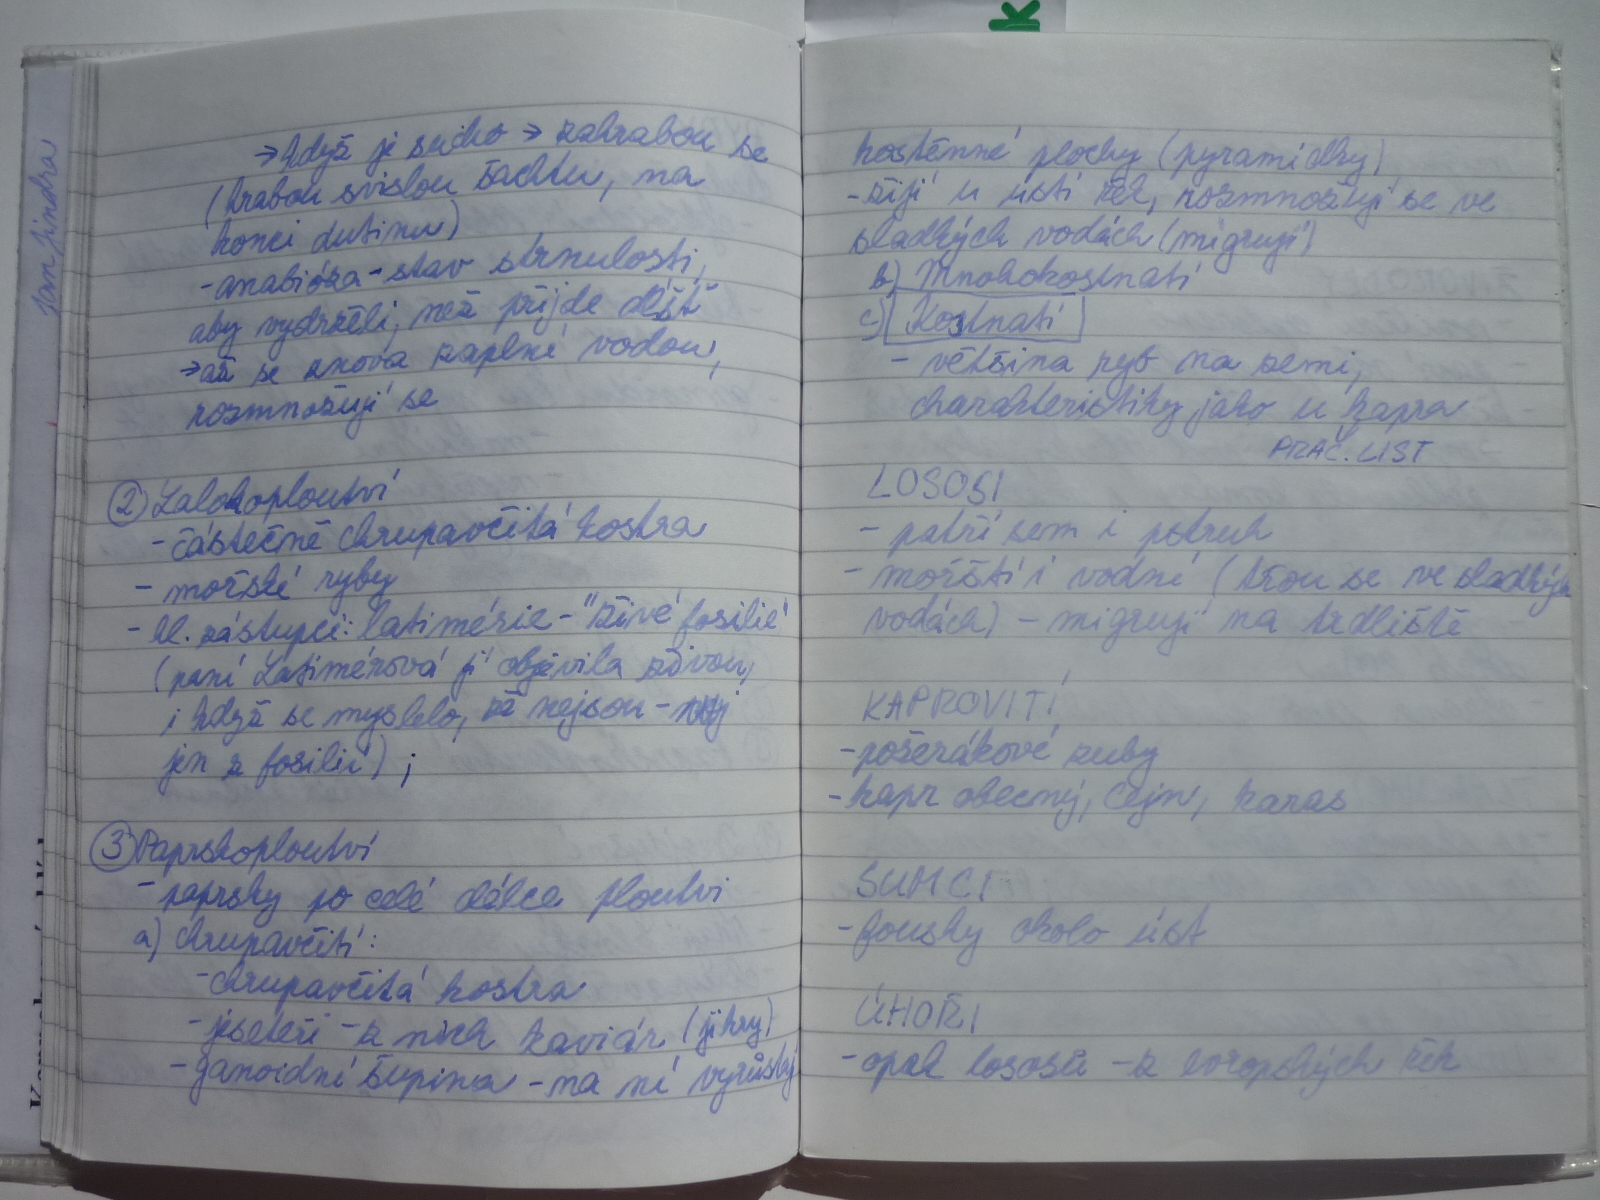 → když je sucho → zahrabou se
(hrabou svislou šachtu, na
konci dutinu)
- anabióza - stav strnulosti,
aby vydrželi, než přijde déšť
→ až se znova zaplní vodou,
rozmnožují se
② Lalokoploutví
- částečně chrupavčitá kostra
- mořské ryby
- hl. zástupci: latimérie - "živé fosilie"
(paní Latimérová ji objevila živou,
i když se myslelo, že nejsou -
jen z fosilií) ;
③ Paprskoploutví
- paprsky po celé délce ploutví
a) chrupavčití:
- chrupavčitá kostra
- jeseteři - z nich kaviár (jikry)
- ganoidní šupina - na ní vyrůstají
kostěnné plochy (pyramidky)
- žijí u ústí řek, rozmnožují se ve
sladkých vodách (migrují)
b) Mnohokostnatí
c) Kostnatí
- většina ryb na zemi,
charakteristiky jako u kapra
PRAC. LIST
LOSOSI
- patří sem i pstruh
- mořští i vodní (třou se ve sladkých
vodách) - migrují na trdliště
KAPROVITÍ
- požerákové zuby
- kapr obecný, cejn, karas
SUMCI
- fousky okolo úst
ÚHOŘI
- opak lososů - z evropských řek
Jan Jindra
k